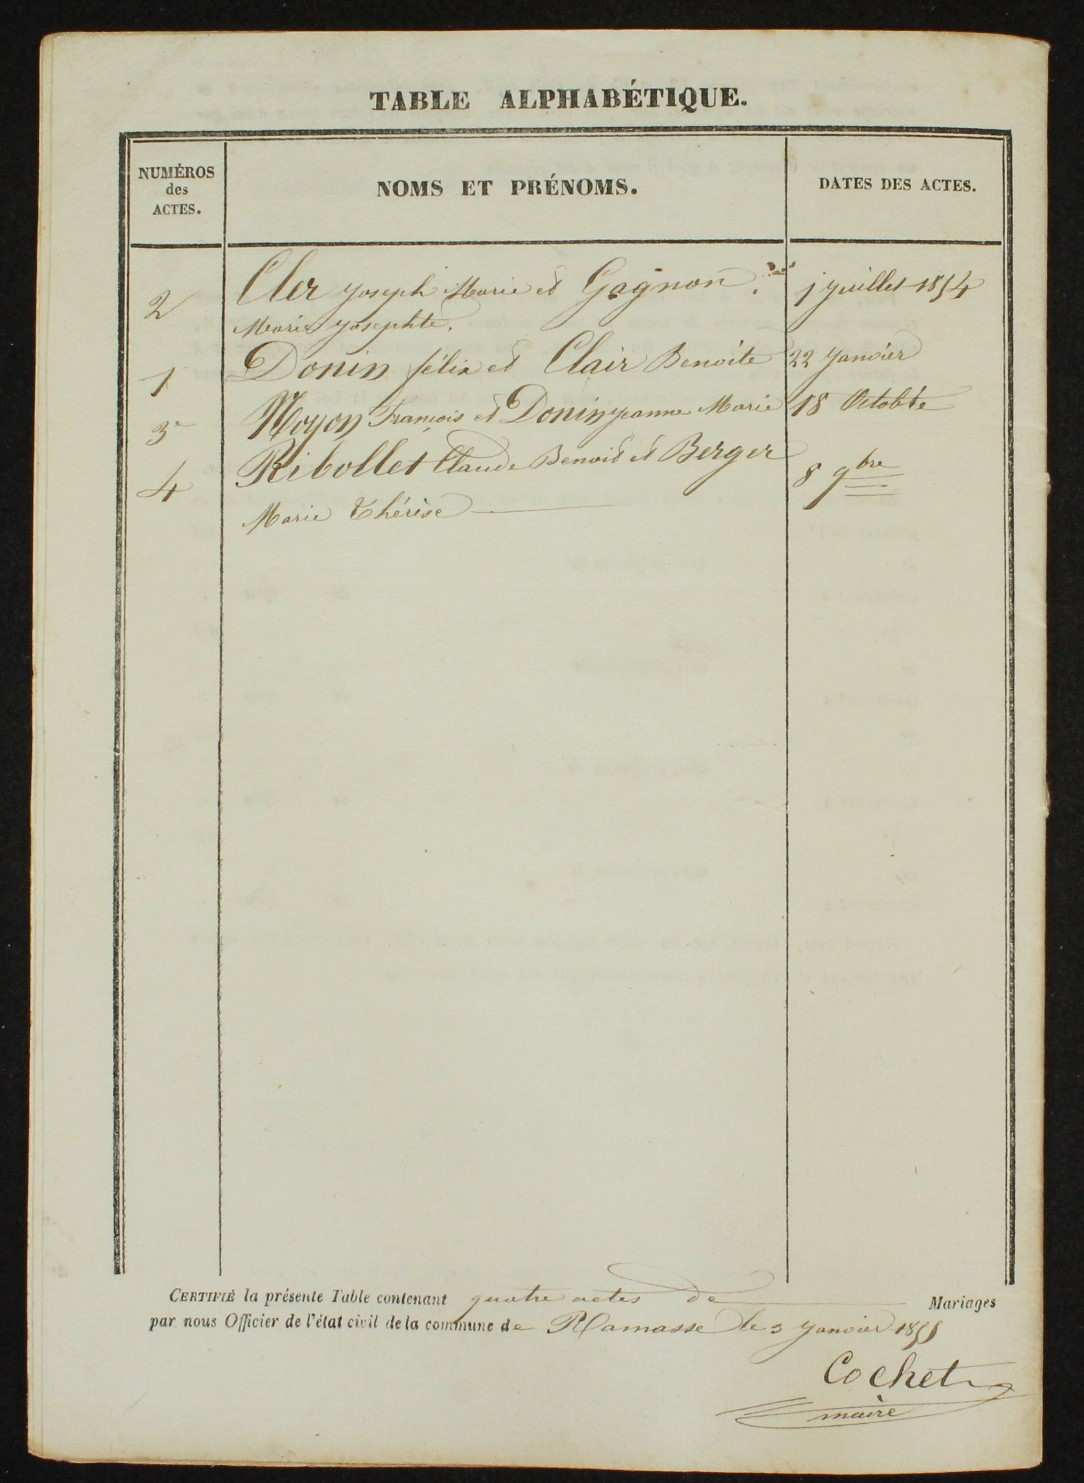 TABLE ALPHABÉTIQUE.
NUMÉROS
des
ACTES.
NOMS ET PRÉNOMS.
DATES DES ACTES.
2 Cler joseph Marie et Gagnon 1 juillet 1854
Marie josephte.
1 Donin félix et Clair Benoite 22 janvier
3 Moyon François et Donin jeanne Marie 18 Octobre
4 Ribollet Claude Benoit et Berger 8 9bre
Marie Thérèse
CERTIFIÉ la présente Table contenant quatre actes de Mariages
par nous Officier de l'état civil de la commune de Ramasse le 3 janvier 1855
Cochet
maire